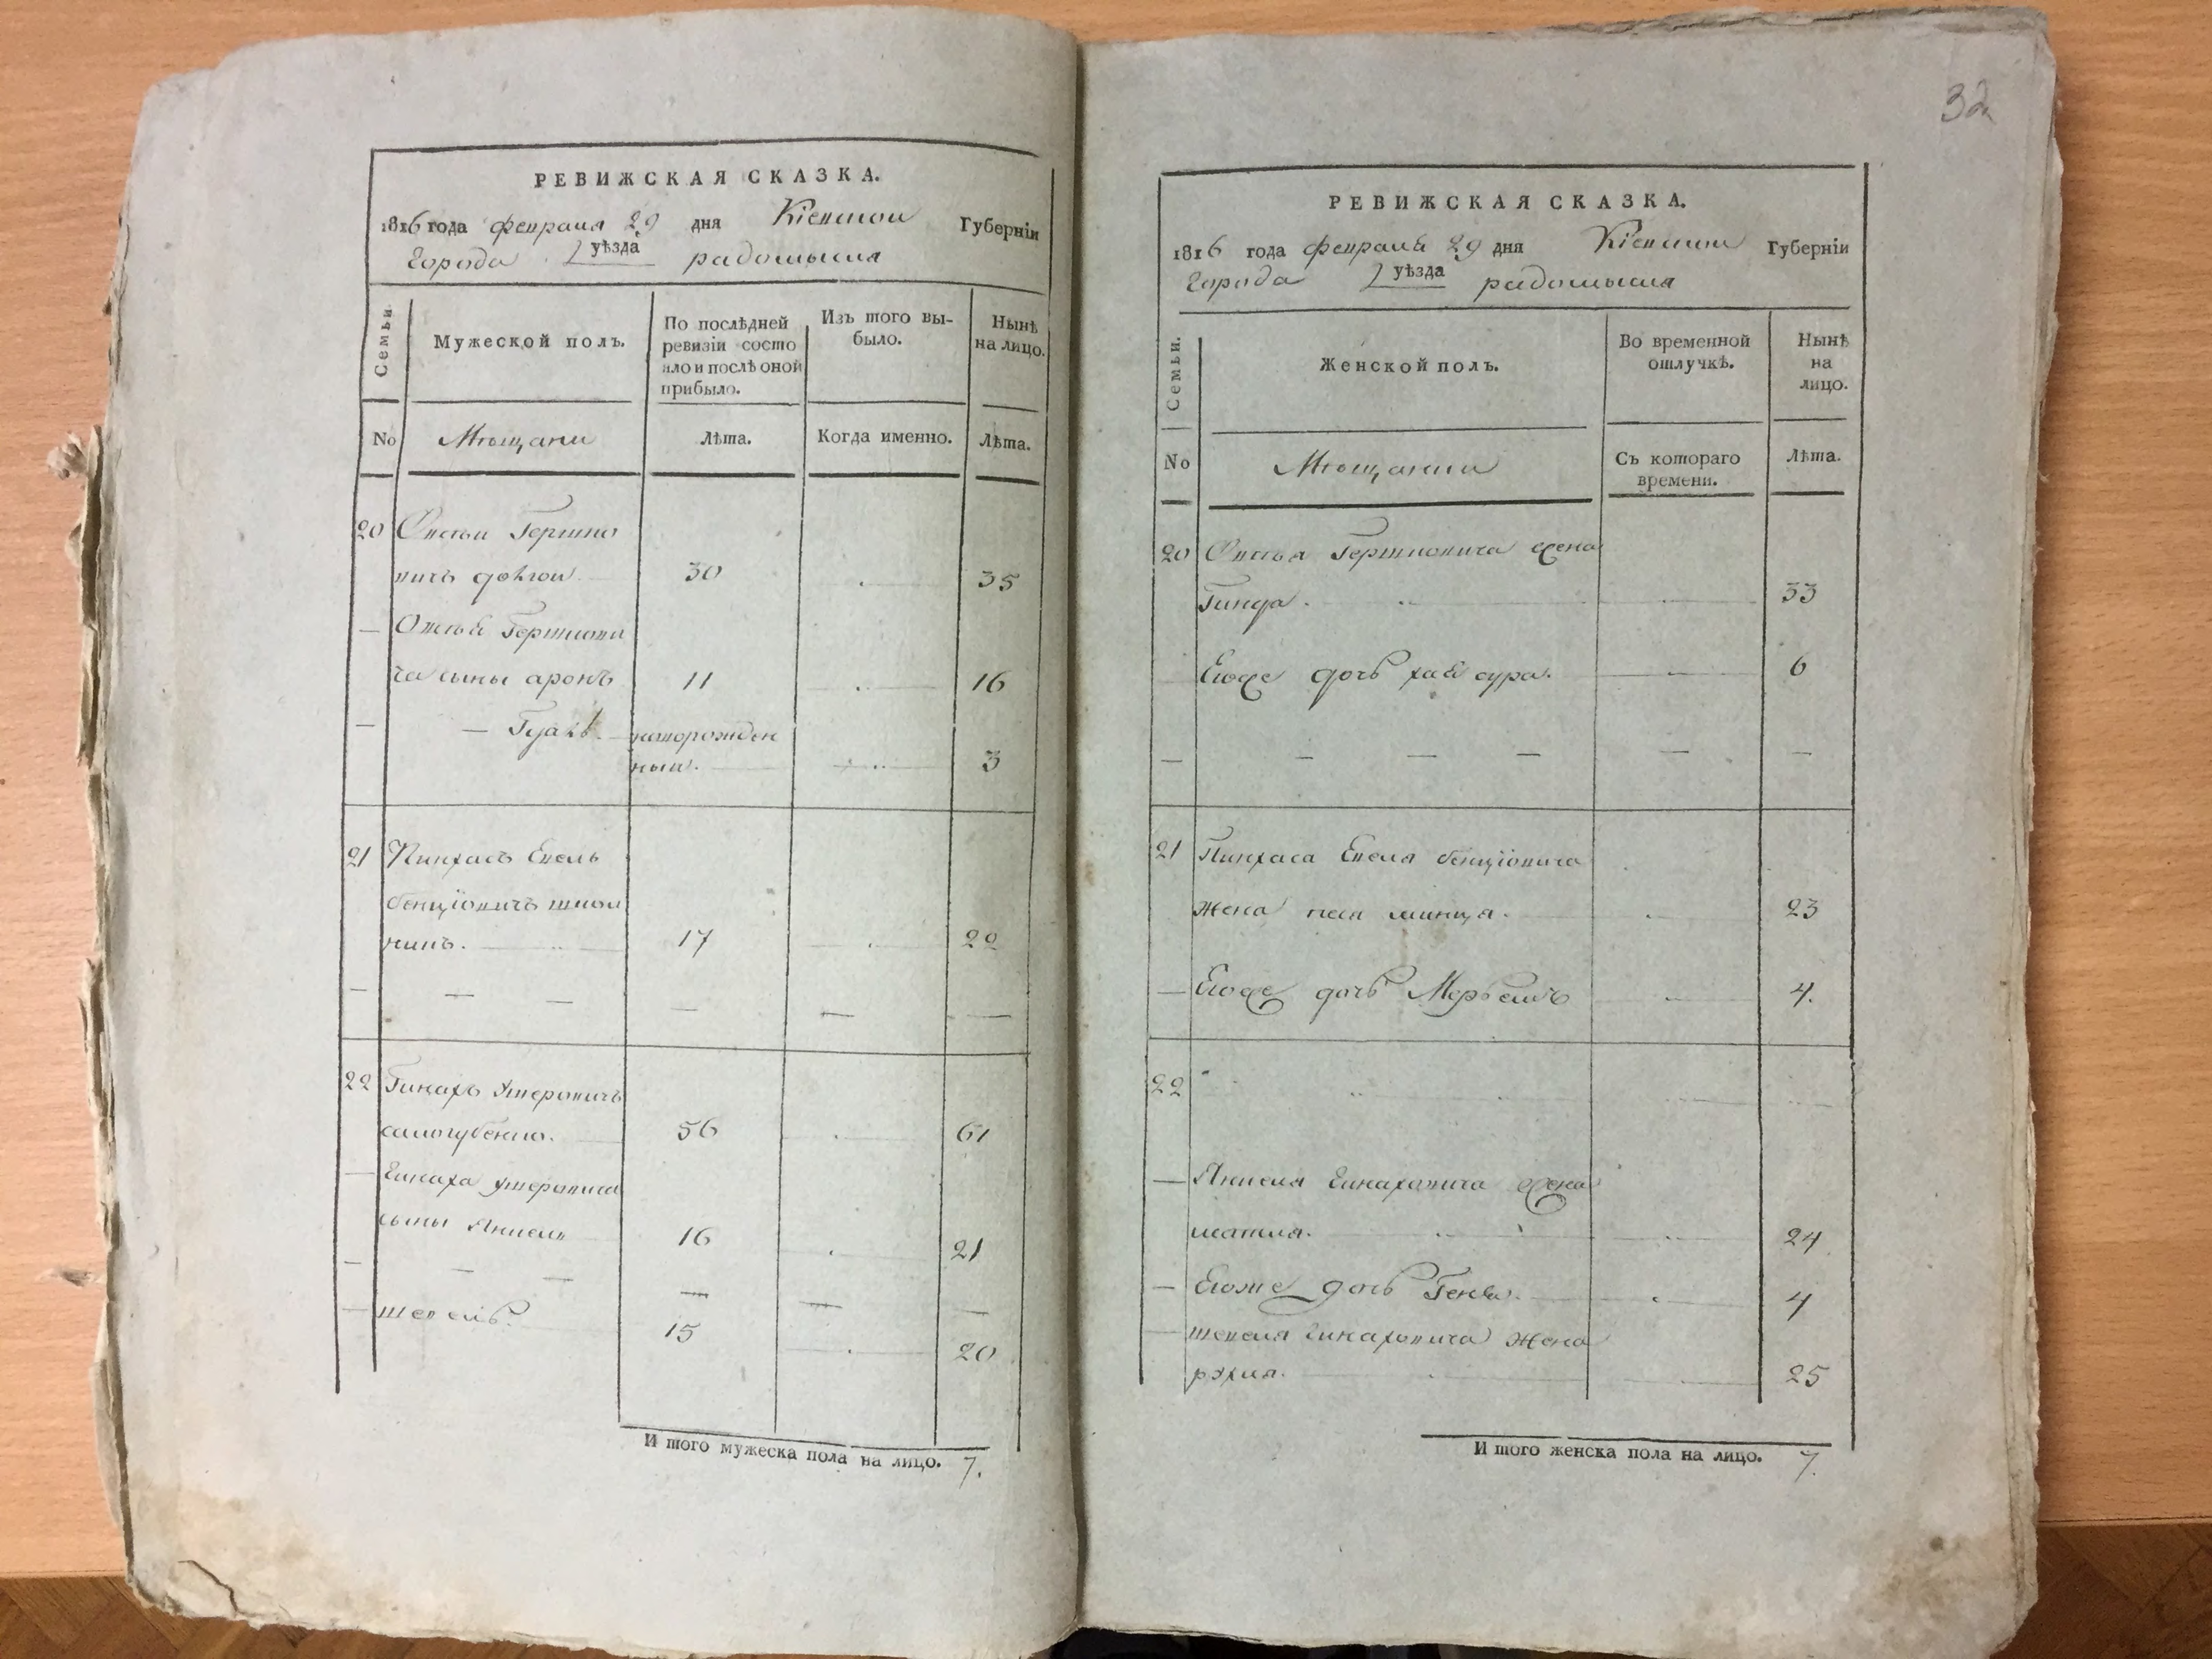 РЕВИЖСКАЯ СКАЗКА.
1816 года февраля 29 дня Кіевской Губерніи
Города уѣзда радомысля
Семьи.
Мужеской полъ.
По послѣдней ревизіи состо
яло и послѣ оной прибыло.
Изъ того вы-
было.
Нынѣ
на лицо.
No Мѣщани Лѣта. Когда именно. Лѣта.
20 Овсѣй Гершко
вичъ 30 35
— Овсѣя Гершкови
ча сыны аронъ 11 16
— — новорожден
ный. 3
21 Пинхасъ Евель
бенціоновичъ
17 22
— — — — — —
22 Гинахъ
56 61
— Гинаха
сыны Янкель 16 21
— — — — — —
— шевель. 15 20
И того мужеска пола на лицо. 7.
32
РЕВИЖСКАЯ СКАЗКА.
1816 года февраля 29 дня Кіевской Губерніи
Города уѣзда радомысля
Семьи.
Женской полъ.
Во временной
отлучкѣ.
Нынѣ
на
лицо.
No Мѣщанки Съ котораго
времени. Лѣта.
20 Овсѣя Гершковича жена
Гинда. 33
Егоже дочь хая сура. 6
— — — — — —
21 Пинхаса Евеля бенціоновича
жена песя минця. 23
— Егоже дочь 4.
22
— Янкеля Гинаховича жена
матля. 24
— Егоже дочь Геня. 4
— шевеля Гинаховича жена
рухля. 25
И того женска пола на лицо. 7.